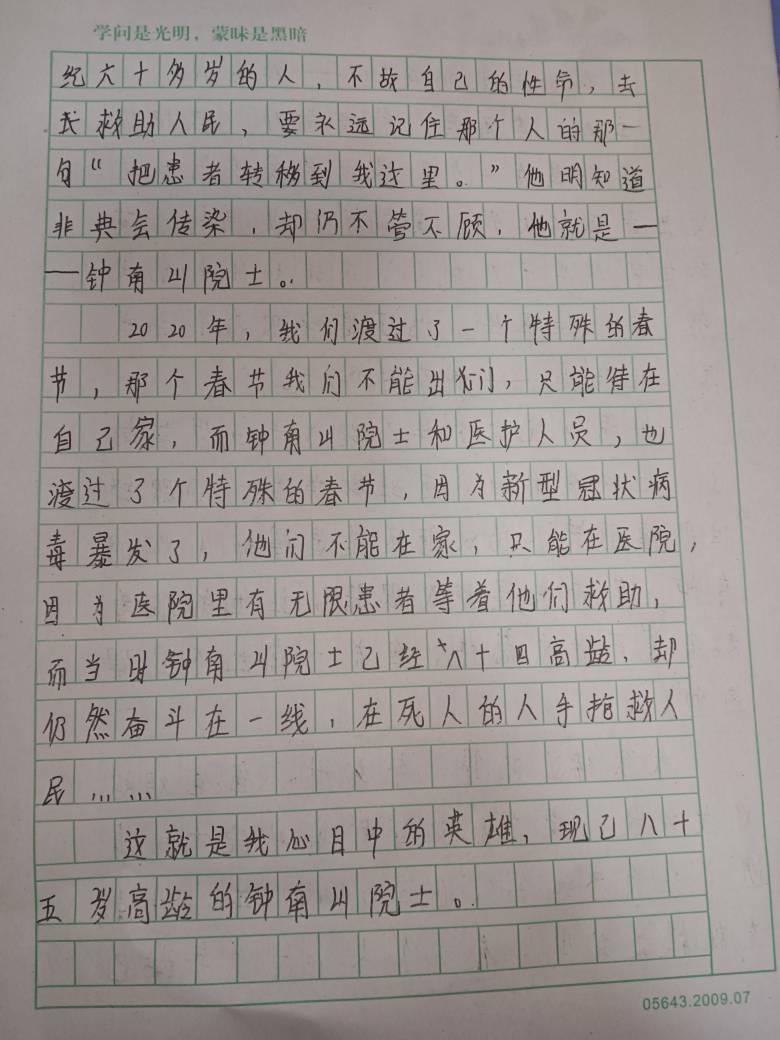 学问是光明，蒙昧是黑暗
纪六十多岁的人，不故自己的性命，去
去救助人民，要永远记住那个人的那一
句“把患者转移到我这里。”他明知道
非典会传染，却仍不管不顾，他就是—
—钟南山院士。
2020年，我们渡过了一个特殊的春
节，那个春节我们不能出门，只能待在
自己家，而钟南山院士和医护人员，也
渡过了个特殊的春节，因为新型冠状病
毒暴发了，他们不能在家，只能在医院，
因为医院里有无限患者等着他们救助，
而当时钟南山院士已经八十四高龄，却
仍然奋斗在一线，在死人的人手抢救人
民……
这就是我心目中的英雄，现已八十
五岁高龄的钟南山院士。
05643.2009.07